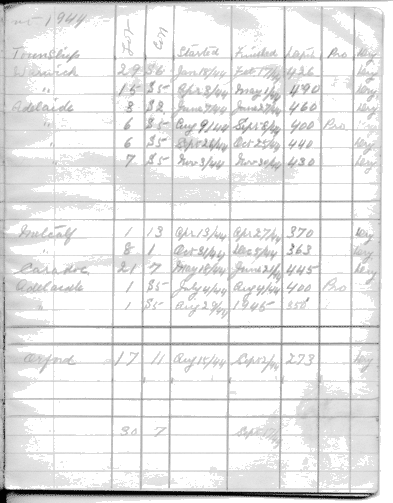 1944
Township Lot Con Started Finished Depth Pro Key
Warwick 29 S6 Jan 18/44 Feb 17/44 426 Key
" 15 S5 Apr 3/44 May 1/44 490 Key
Adelaide 8 S2 June 7/44 June 27/44 460 Key
" 6 S5 Aug 9/44 Sept 8/44 400 Pro Key
" 6 S5 Sept 26/44 Oct 25/44 440 Key
" 7 S5 Nov 3/44 Nov 30/44 430 Key
Metcalf 1 13 Apr 13/44 Apr 27/44 370 Key
" 8 1 Oct 31/44 Dec 5/44 363 Key
Caradoc 21 7 May 18/44 June 21/44 445 Key
Adelaide 1 S5 July 4/44 Aug 4/44 400 Pro Key
" 1 S5 Aug 29/44 1945 350 Key
Orford 17 11 Aug 15/44 Sept 2/44 273 Key
30 7 Sept